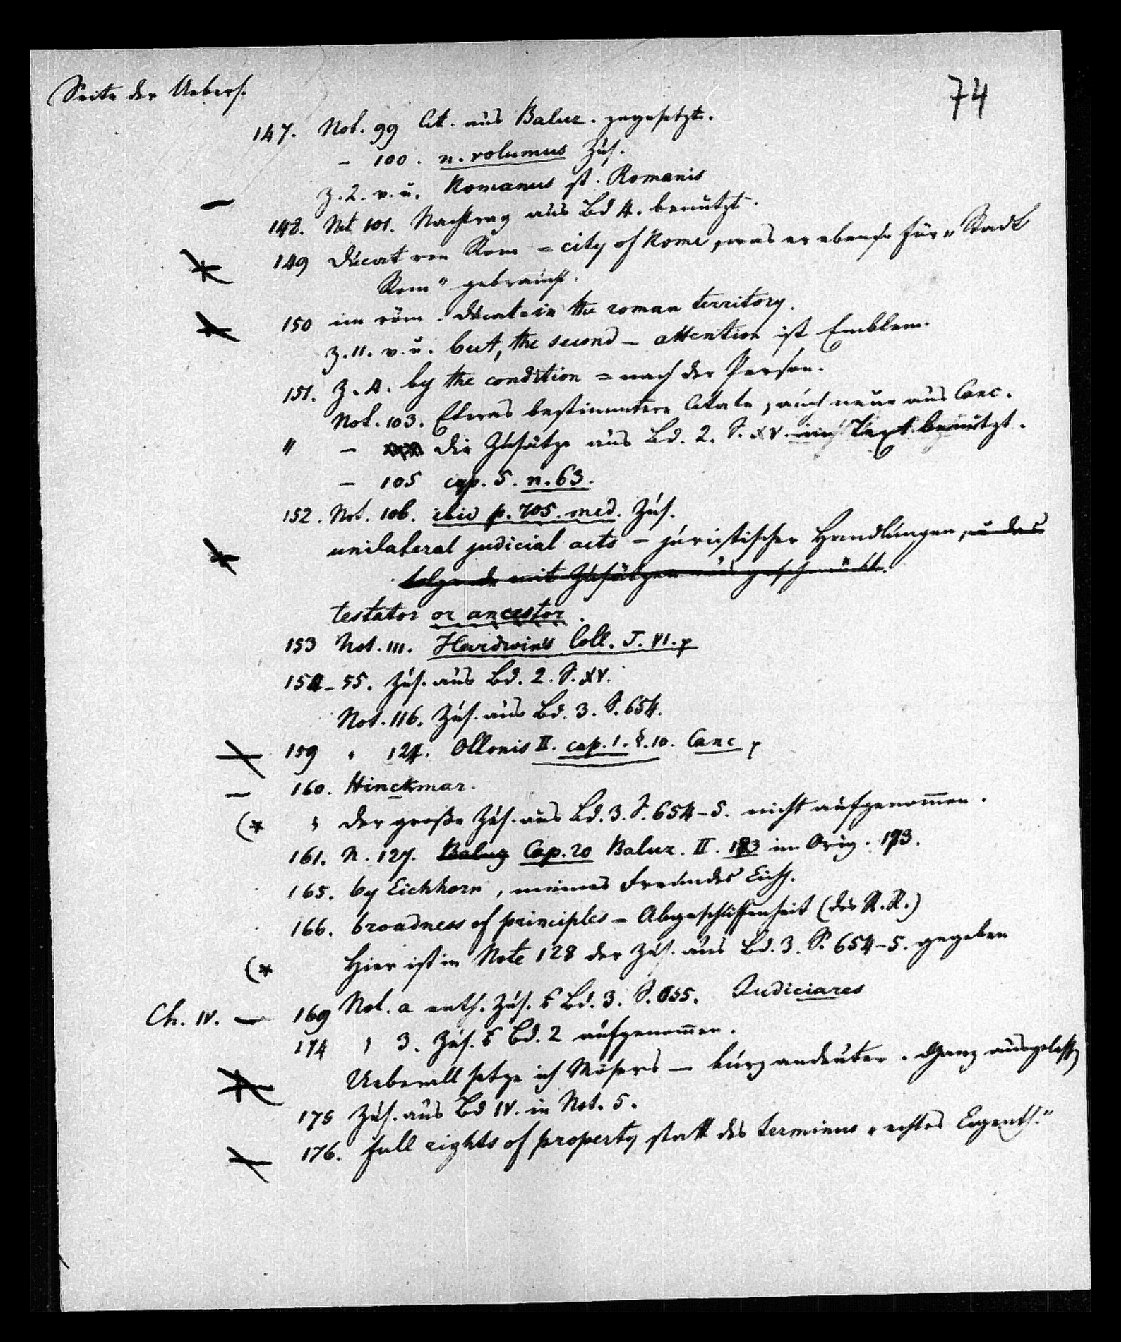 Seite der Uebers.
74
147. Not. 99 Cit. aus Baluz. zugesetzt.
– 100. n. volumus Zus.
Z. 2. v. u. Romanus st. Romanis
148. Not 101. Nachtrag aus Bd 4. benutzt.
149 Ducat von Rom = city of Rome, was er ebenso für „Stadt
Rom“ gebraucht.
150 im röm. Ducate in the roman territory.
Z. 11. v. u. but, the second – attention ist Emblem.
151. Z. 4. by the condition = nach der Person.
Not. 103. Etwas bestimmtere Citate, auch neue aus Canc.
" – die Zusätze aus Bd. 2. S. XV. benutzt.
– 105 cap. 5. n. 63.
152. Not. 106. ibid p. 705. med. Zus.
unilateral judicial acts – juristischer Handlungen, u. das
folgende mit Zusätzen
testator or ancestor.
153 Not. 111. Harduin's Coll. T. VI. p
154–55. Zus. aus Bd. 2. S. XV.
Not. 116. Zus. aus Bd. 3. S. 654.
159 " 124. Ottonis II. cap. 1. §. 10. Canc. p
160. Hinckmar.
" der große Zus. aus Bd. 3. S. 654–5. nicht aufgenommen.
161. N. 127. Baluz Cap. 20 Baluz. II. 183 im Orig. 193.
165. by Eichhorn, meines Freundes Eichh.
166. broadness of principles – Abgeschliffenheit (des R. R.)
Hier ist in Note 128 der Zus. aus Bd. 3. S. 654–5. gegeben
Ch. IV. – 169 Not. a enth. Zus. Bd. 3. S. 655. Judiciares
174 " 3. Zus. Bd. 2 aufgenommen.
Ueberall setze ich Mösers – kurz andeuten. Ganz ausgelassen
175 Zus. aus Bd IV. in Not. 5.
176. full rights of property statt des terminus „echtes Eigenth.“